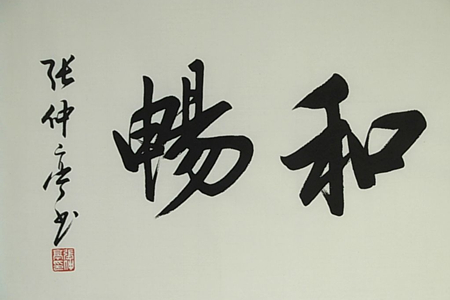 和暢
张仲亭书